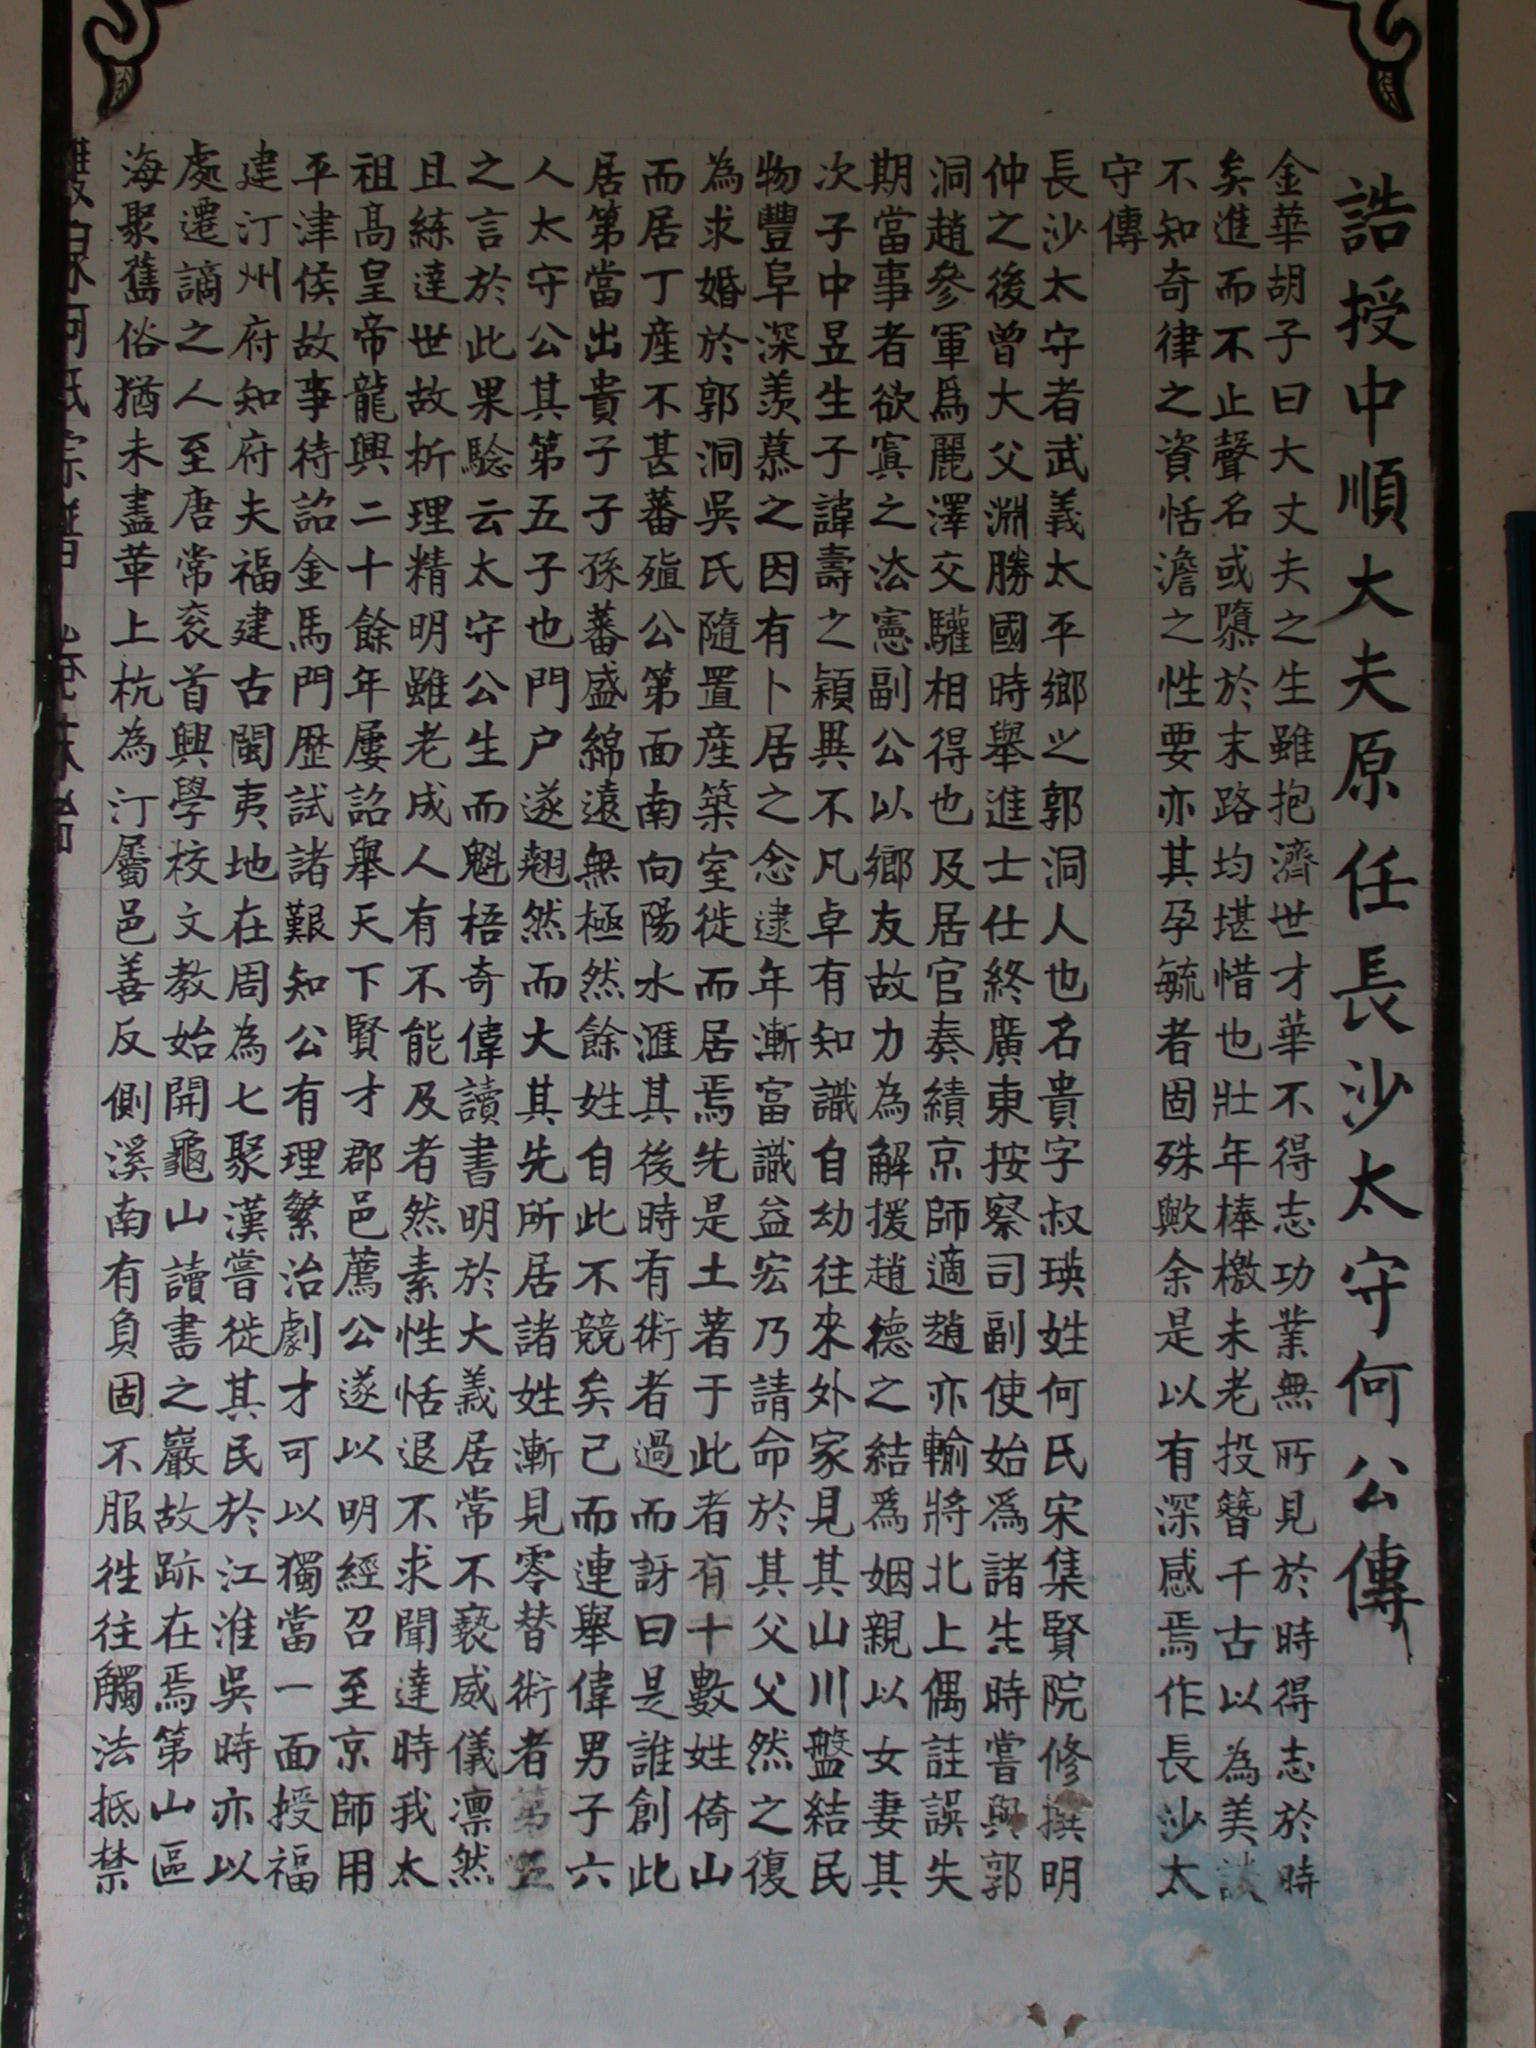 誥授中順大夫原任長沙太守何公傳
金華胡子曰大丈夫之生雖抱濟世才華不得志功業無所見於時得志於時
矣進而不止聲名或隳於末路均堪惜也壯年棒檄未老投簪千古以為美談
不知奇律之資恬澹之性要亦其孕毓者固殊歟余是以有深感焉作長沙太
守傳
長沙太守者武義太平鄉之郭洞人也名貴字叔瑛姓何氏宋集賢院修撰明
仲之後曾大父淵勝國時舉進士仕終廣東按察司副使始爲諸生時嘗與郭
洞趙參軍爲麗澤交驩相得也及居官奏績京師適趙亦輸將北上偶註誤失
期當事者欲寘之法憲副公以鄉友故力為解援趙德之結爲姻親以女妻其
次子中昱生子諱壽之穎異不凡卓有知識自幼往來外家見其山川盤結民
物豐阜深羨慕之因有卜居之念逮年漸富識益宏乃請命於其父父然之復
為求婚於郭洞吳氏隨置産築室徙而居焉先是土著于此者有十數姓倚山
而居丁産不甚蕃殖公第面南向陽水滙其後時有術者過而訝曰是誰創此
居第當出貴子子孫蕃盛綿遠無極然餘姓自此不競矣己而連舉偉男子六
人太守公其第五子也門户遂翹然而大其先所居諸姓漸見零替術者第五
之言於此果驗云太守公生而魁梧奇偉讀書明於大義居常不褻威儀凛然
且練達世故析理精明雖老成人有不能及者然素性恬退不求聞達時我太
祖高皇帝龍興二十餘年屢詔舉天下賢才郡邑薦公遂以明經召至京師用
平津侯故事待詔金馬門歷試諸艱知公有理繁治劇才可以獨當一面授福
建汀州府知府夫福建古閩夷地在周為七聚漢嘗徙其民於江淮吳時亦以
處遷謫之人至唐常袞首興學校文教始開龜山讀書之巖故跡在焉第山區
海聚舊俗猶未盡革上杭為汀屬邑善反側溪南有負固不服徃往觸法抵禁